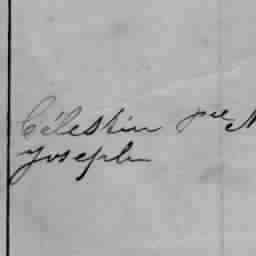 Célestin
Joseph